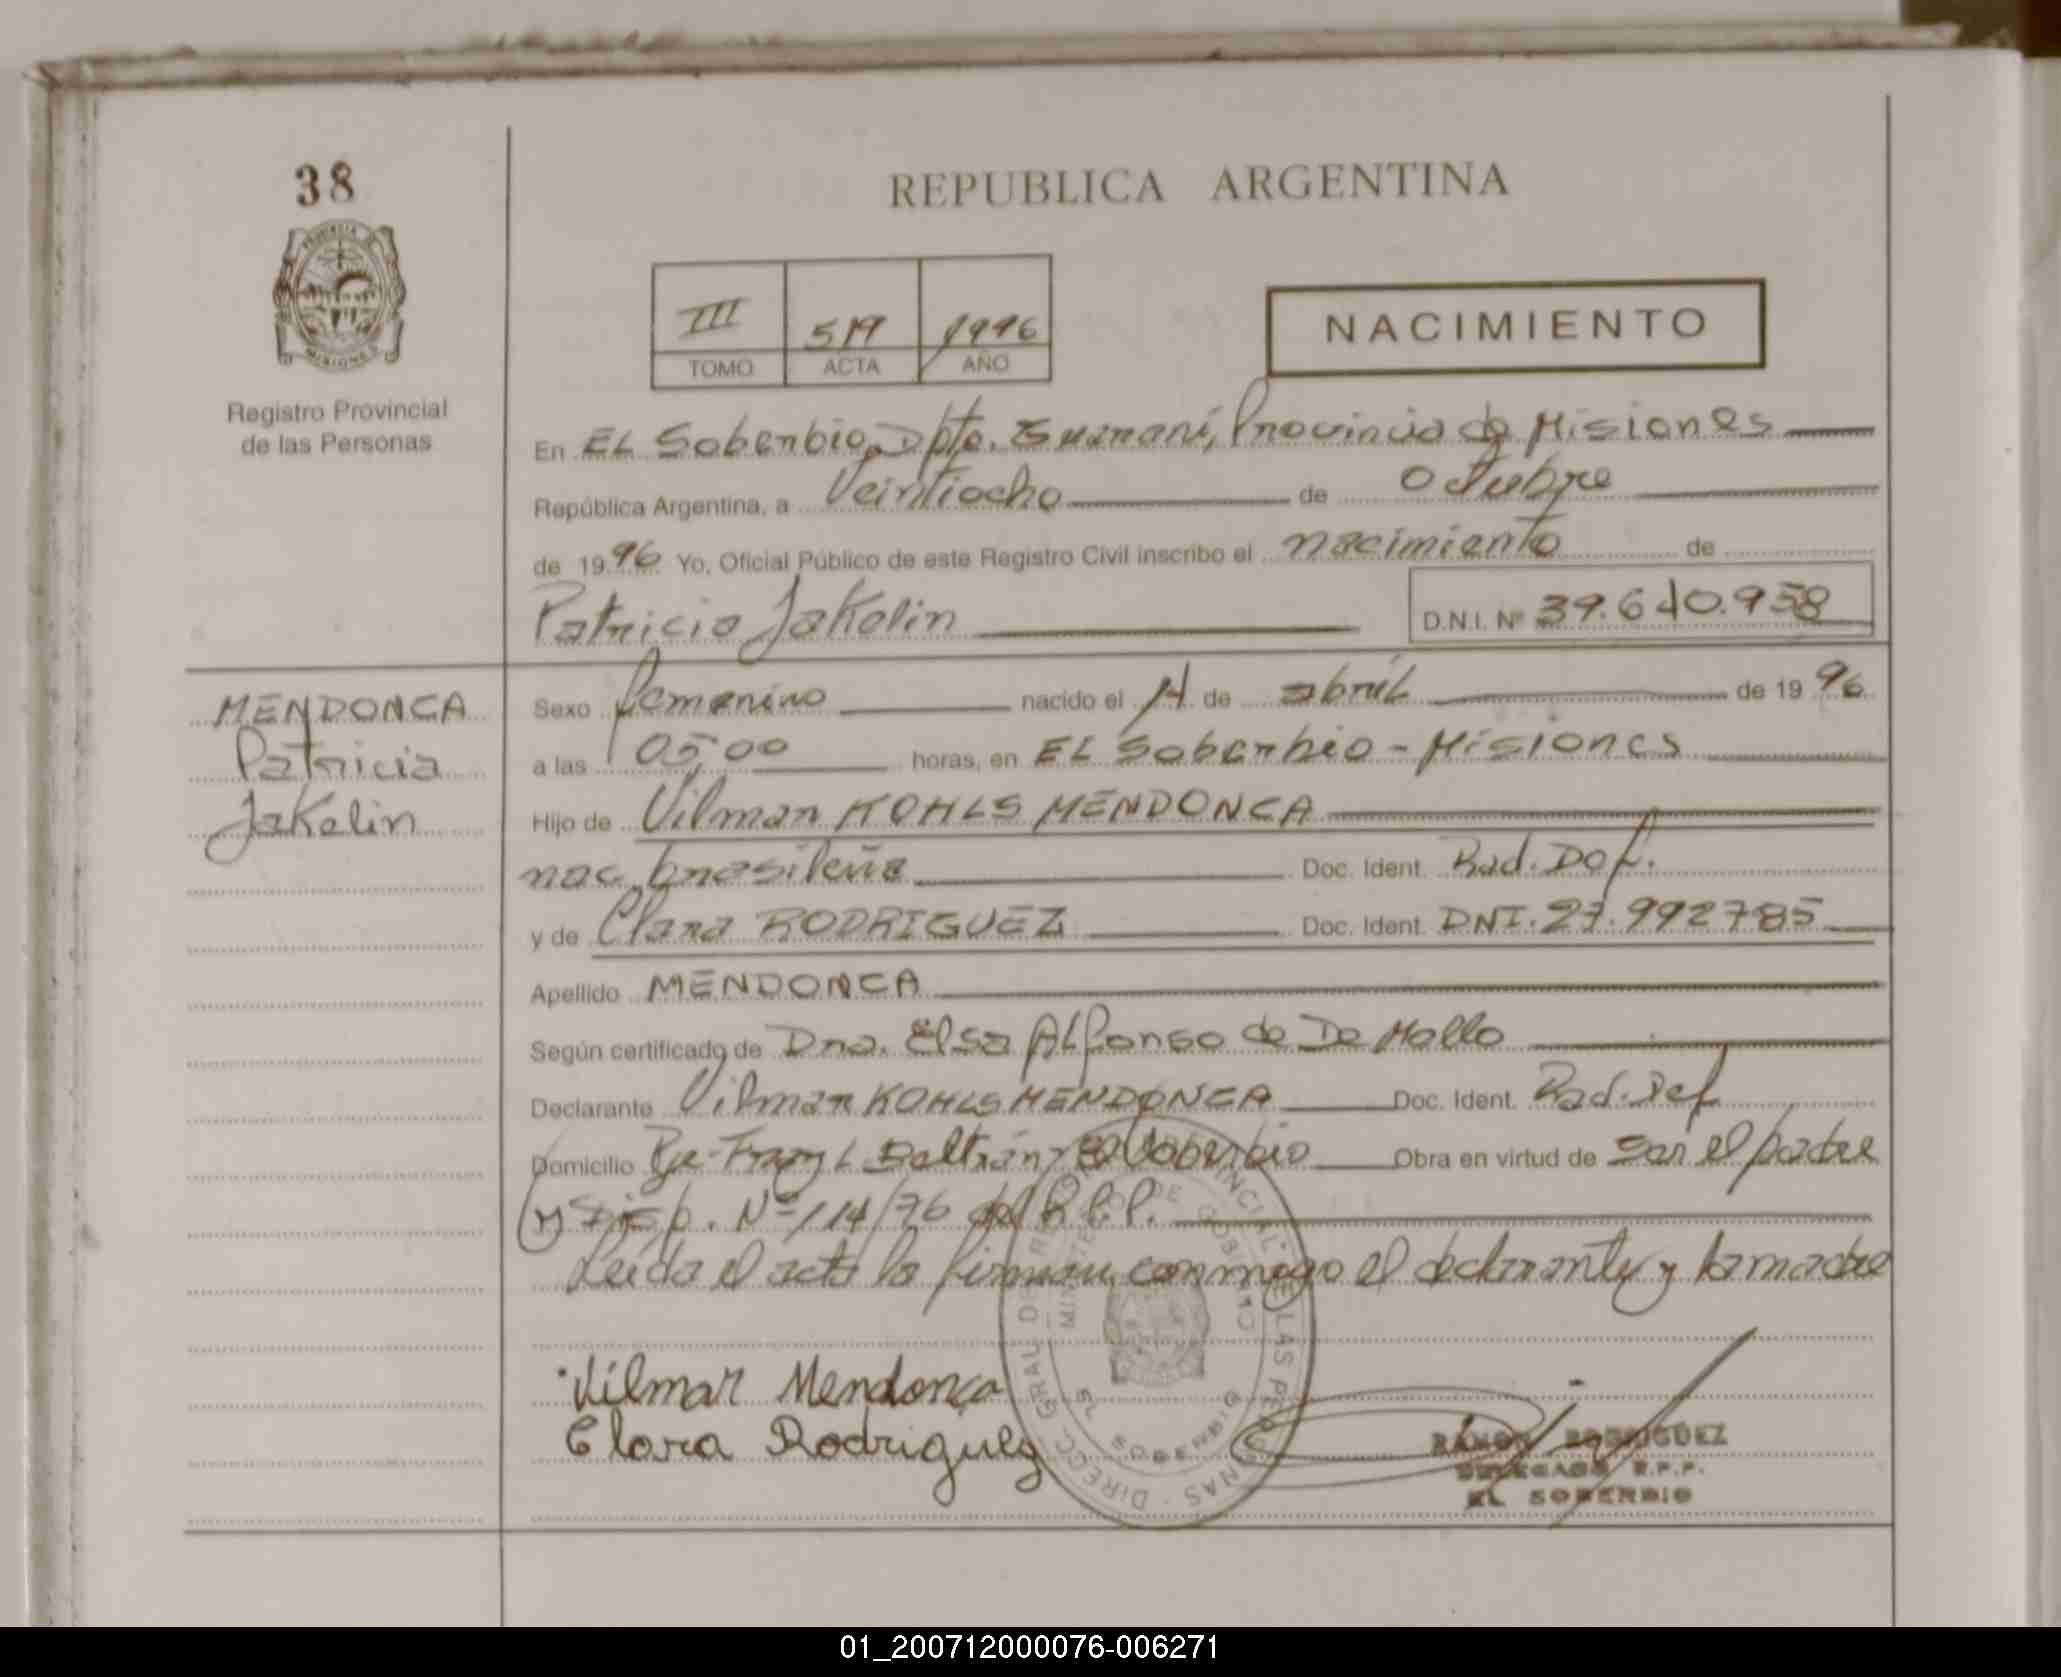 38
REPUBLICA ARGENTINA
III 519 1996
TOMO ACTA AÑO
NACIMIENTO
Registro Provincial
de las Personas
En EL Soberbio, Dpto. Guaraní, Provincia de Misiones
República Argentina, a Veintiocho de Octubre
de 1996 Yo, Oficial Público de este Registro Civil inscribo el nacimiento de
Patricia Jakelin
D.N.I. Nº 39.640.958
MENDONCA
Patricia
Jakelin
Sexo femenino nacido el 14 de abril de 1996
a las 05,00 horas, en EL Soberbio - Misiones
Hijo de Vilmar KOHLS MENDONCA
nac. brasileña Doc. Ident. Rad. Def.
y de Clara RODRIGUEZ Doc. Ident. DNI. 27.992785
Apellido MENDONCA
Según certificado de Dra. Elsa Alfonso de De Mello
Declarante Vilmar KOHLS MENDONCA Doc. Ident. Rad. Def
Domicilio Pje. Fray L Beltrán, El Soberbio Obra en virtud de ser el padre
y Disp. Nº 114/76 del R.P.P.
Leída el acta la firman conmigo el declarante y la madre
Vilmar Mendonça
Clara Rodriguez
DIRECC. GRAL DE REGISTRO PROVINCIAL DE LAS PERSONAS
MINISTERIO DE GOBIERNO
EL SOBERBIO
RAMON RODRIGUEZ
DELEGADO R.P.P.
EL SOBERBIO
01_200712000076-006271